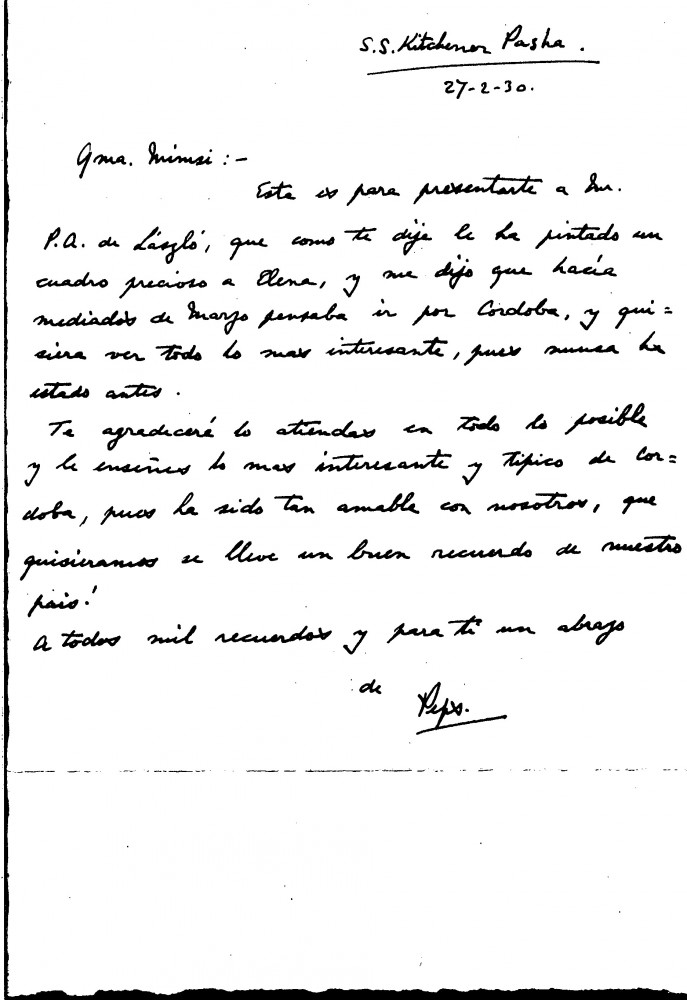 S.S. Kitchener Pasha.
27-2-30.
Qma. Mimsi :-
Esta es para presentarte a Mr.
P.A. de László, que como te dije le ha pintado un
cuadro precioso a Elena, y me dijo que hacía
mediados de Marzo pensaba ir por Cordoba, y qui=
siera ver todo lo mas interesante, pues nunca ha
estado antes.
Te agradeceré lo atiendas en todo lo posible
y le enseñes lo mas interesante y tipico de Cor=
doba, pues ha sido tan amable con nosotros, que
quisieramos se lleve un buen recuerdo de nuestro
pais!
A todos mil recuerdos y para ti un abrazo
de